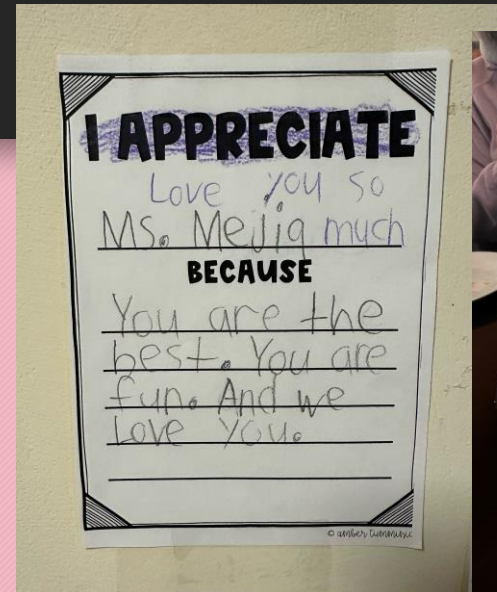 I APPRECIATE
Love you so
Ms. Mejia much
BECAUSE
You are the
best. You are
fun. And we
Love You.
© amber